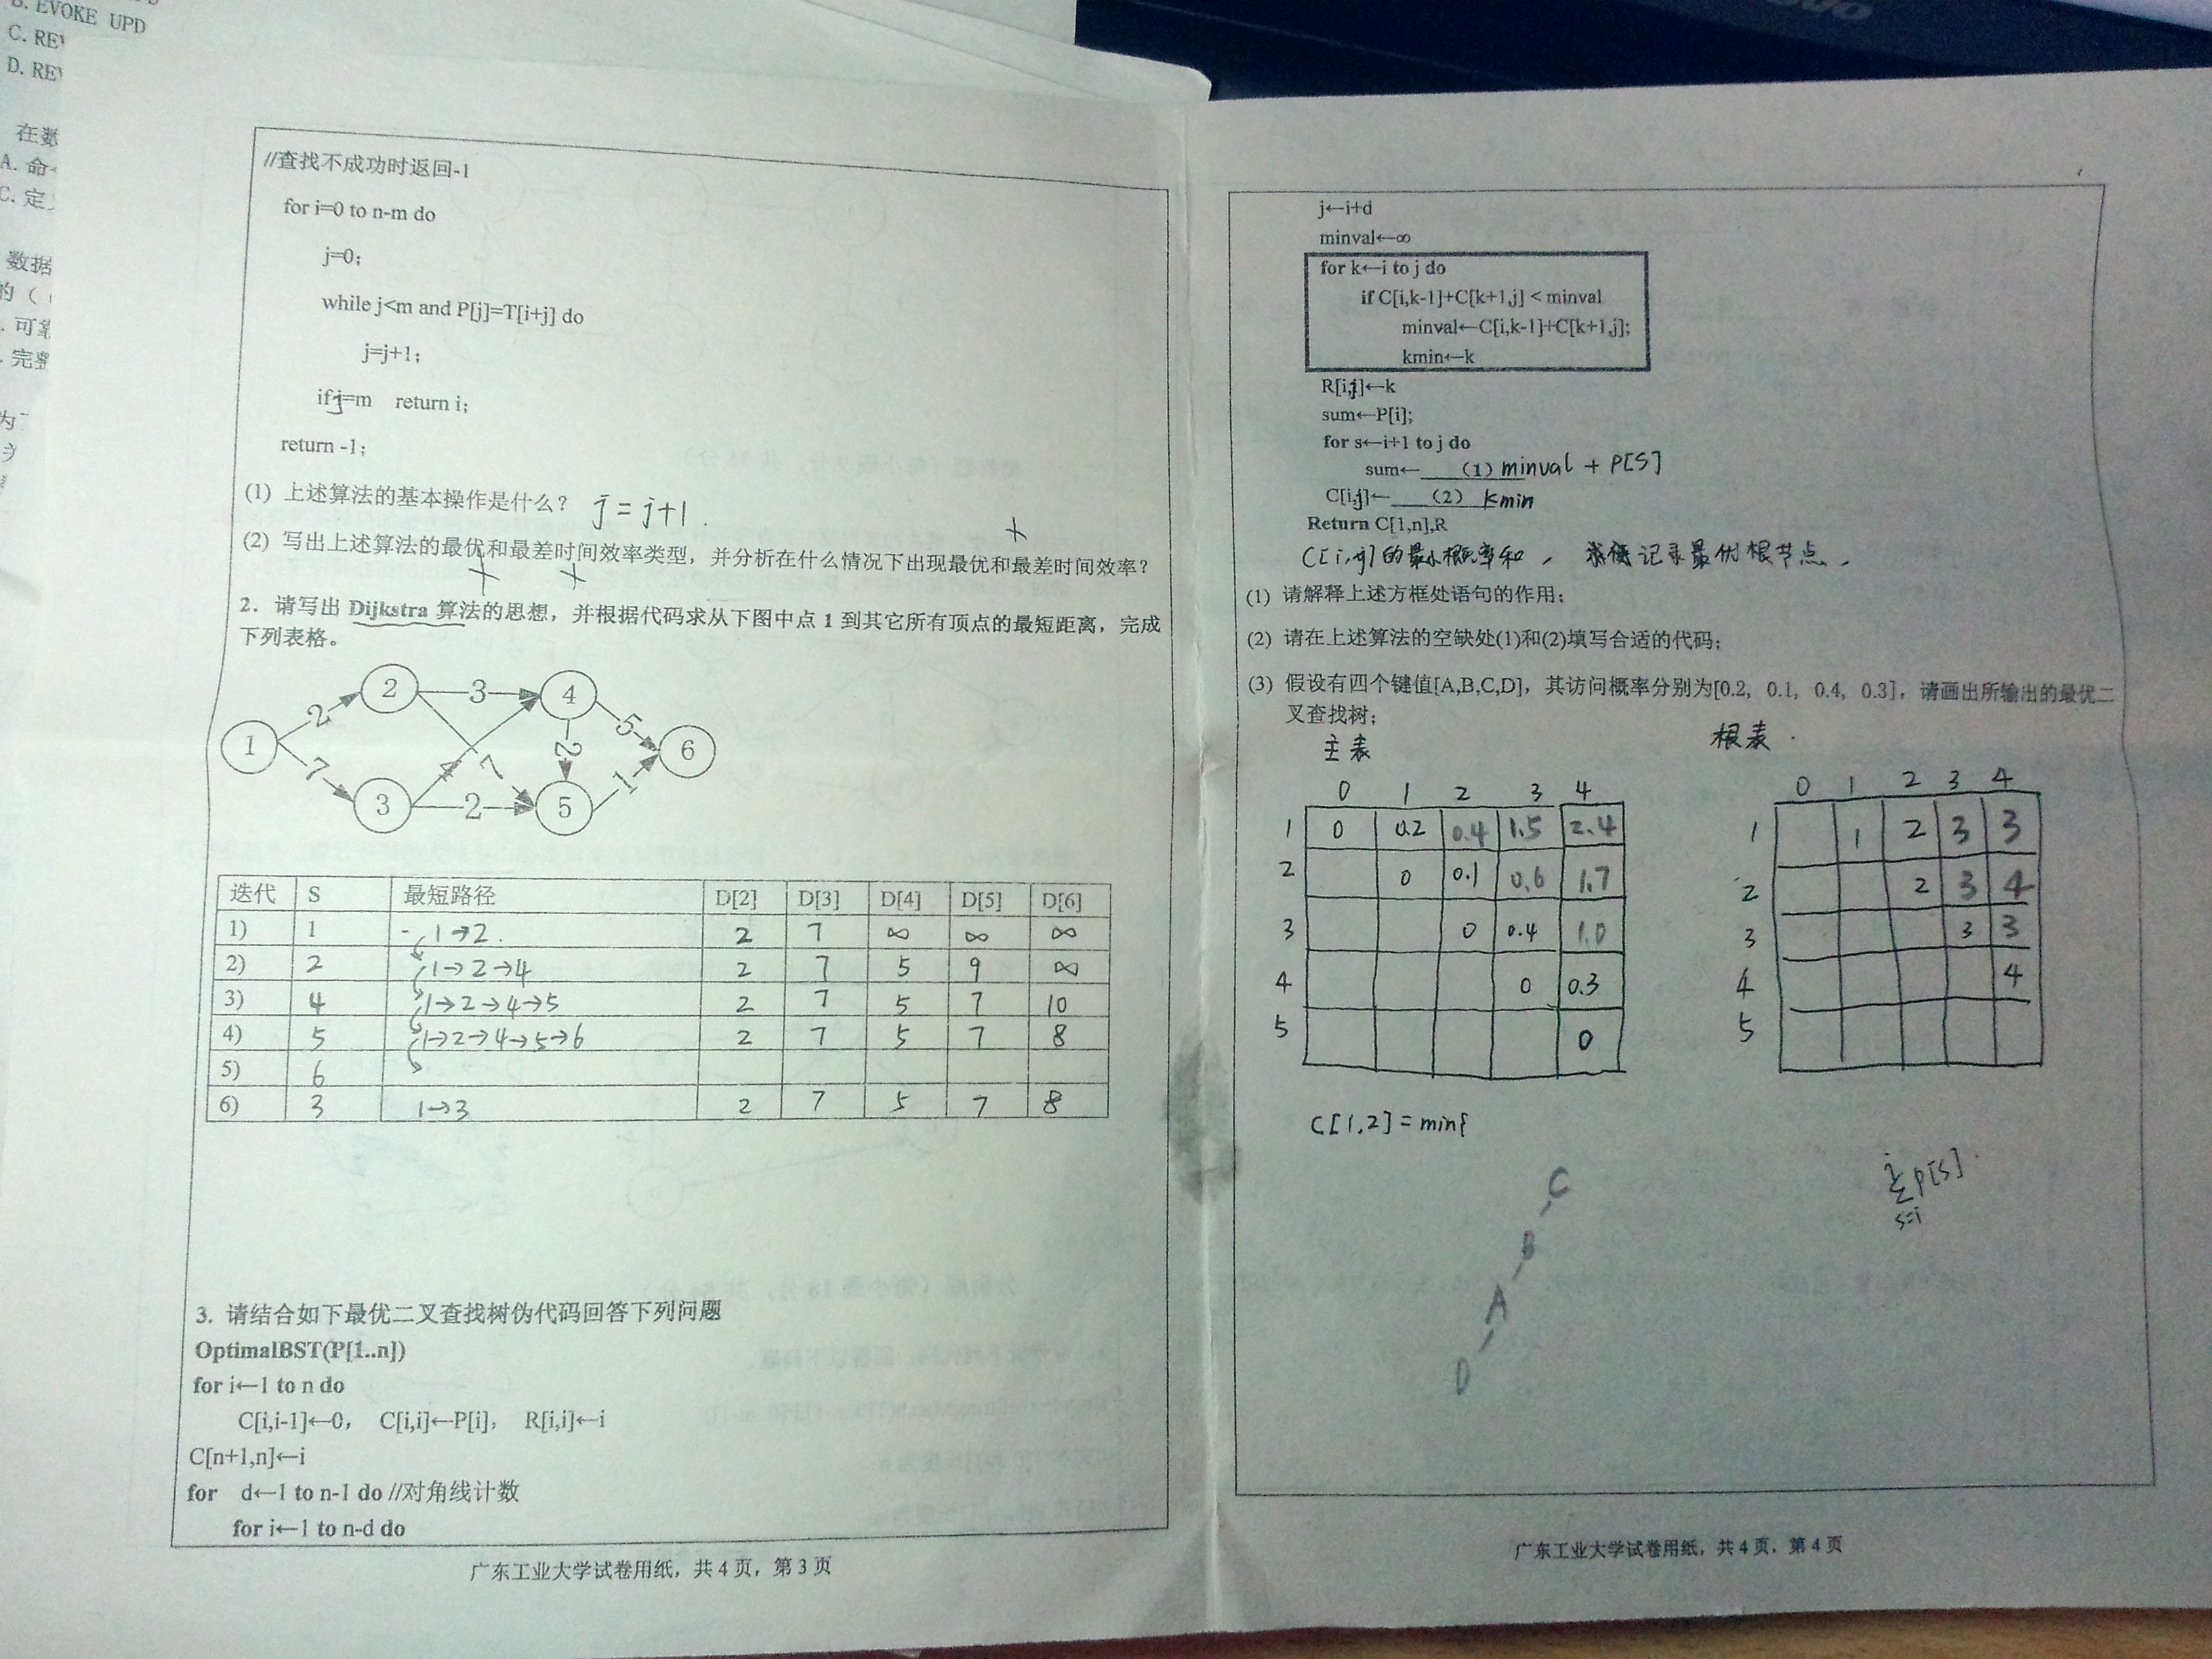 B. EVOKE UPD
C. REV
D. REV
在数
A. 命
C. 定
数据
//查找不成功时返回-1
for i=0 to n-m do
j=0;
while j<m and P[j]=T[i+j] do
j=j+1;
if j=m return i;
return -1;
(1) 上述算法的基本操作是什么? j=j+1.
(2) 写出上述算法的最优和最差时间效率类型，并分析在什么情况下出现最优和最差时间效率?
2. 请写出 Dijkstra 算法的思想，并根据代码求从下图中点 1 到其它所有顶点的最短距离，完成
下列表格。
2 3 4
2 5
1 2 6
7 4 7 1
3 2 5
迭代 S 最短路径 D[2] D[3] D[4] D[5] D[6]
1) 1 - 1→2. 2 7 ∞ ∞ ∞
2) 2 1→2→4 2 7 5 9 ∞
3) 4 1→2→4→5 2 7 5 7 10
4) 5 1→2→4→5→6 2 7 5 7 8
5) 6
6) 3 1→3 2 7 5 7 8
3. 请结合如下最优二叉查找树伪代码回答下列问题
OptimalBST(P[1..n])
for i←1 to n do
C[i,i-1]←0, C[i,i]←P[i], R[i,i]←i
C[n+1,n]←i
for d←1 to n-1 do //对角线计数
for i←1 to n-d do
广东工业大学试卷用纸，共 4 页，第 3 页
j←i+d
minval←∞
for k←i to j do
if C[i,k-1]+C[k+1,j] < minval
minval←C[i,k-1]+C[k+1,j];
kmin←k
R[i,j]←k
sum←P[i];
for s←i+1 to j do
sum← (1) minval + P[S]
C[i,j]← (2) kmin
Return C[1,n],R
C[i,j]的最小概率和， 记录最优根节点.
(1) 请解释上述方框处语句的作用;
(2) 请在上述算法的空缺处(1)和(2)填写合适的代码;
(3) 假设有四个键值[A,B,C,D]，其访问概率分别为[0.2, 0.1, 0.4, 0.3]，请画出所输出的最优二
叉查找树;
主表
0 1 2 3 4
1 0 0.2 0.4 1.5 2.4
2 0 0.1 0.6 1.7
3 0 0.4 1.0
4 0 0.3
5 0
根表.
0 1 2 3 4
1 1 2 3 3
2 2 3 4
3 3 3
4 4
5
C[1,2]=min{
C
B
A
D
j
∑P[S].
s=i
广东工业大学试卷用纸，共 4 页，第 4 页